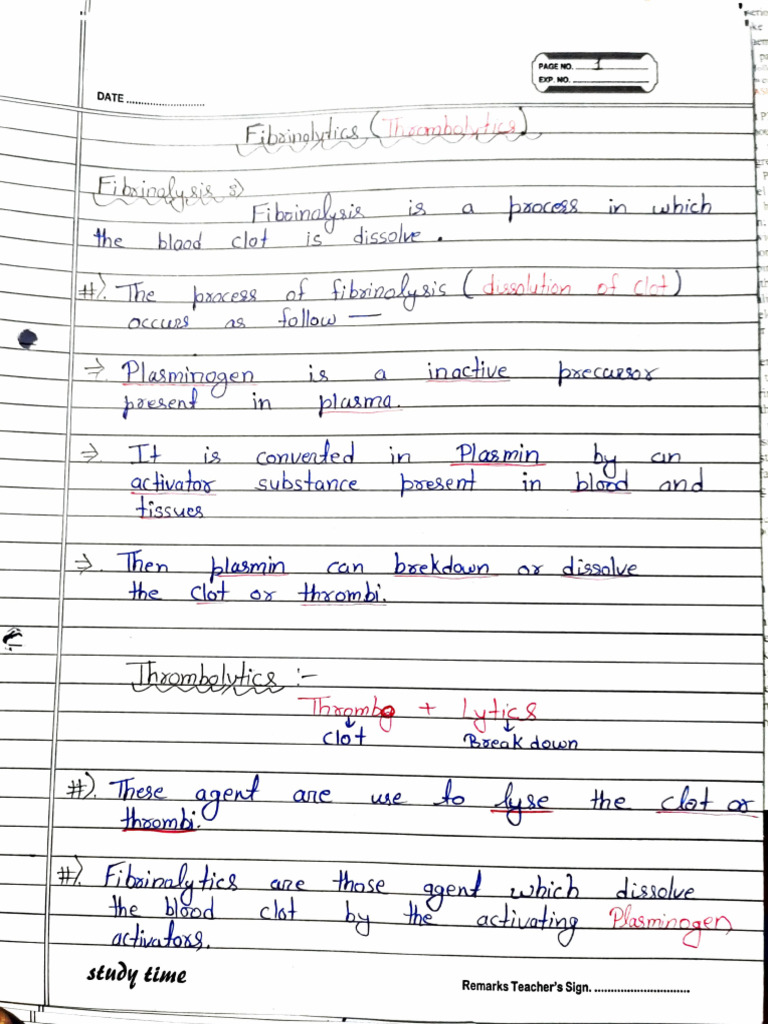 PAGE NO. 1
EXP. NO.
DATE
Fibrinolytics (Thrombolytics)
Fibrinolysis :)
Fibrinolysis is a process in which
the blood clot is dissolve.
#). The process of fibrinolysis (dissolution of clot)
occurs as follow —
⇒. Plasminogen is a inactive precursor
present in plasma.
⇒. It is converted in Plasmin by an
activator substance present in blood and
tissues
⇒. Then plasmin can brekdown or dissolve
the clot or thrombi.
Thrombolytics :-
Thrombo + Lytics
↓ ↓
clot Break down
#). These agent are use to lyse the clot or
thrombi.
#). Fibrinolytics are those agent which dissolve
the blood clot by the activating Plasminogen
activators.
study time
Remarks Teacher's Sign.